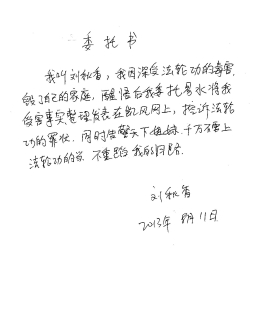 委托书
我叫刘秋香，我因深受法轮功的毒害，
毁了自己的家庭，醒悟后我委托易水将我
受害事实整理发表在凯风网上，控诉法轮
功的罪状，同时告警天下姐妹，千万不要上
法轮功的当 不重蹈我的旧路
刘秋香
2013年 8月11日